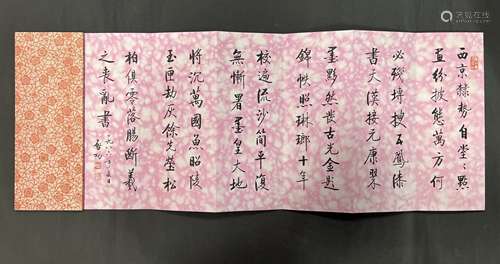 西京隸勢自堂〻點
畫紛披態萬方何
必殘塼搜五鳳漆
書天漢接元康翠
墨黟然發古光金題
錦帙照琳瑯十年
校遍流沙簡平復
無慚署墨皇大地
將沉萬國魚昭陵
玉匣劫灰餘先塋松
柏俱零落腸斷羲
之喪亂書
一九八
啟功